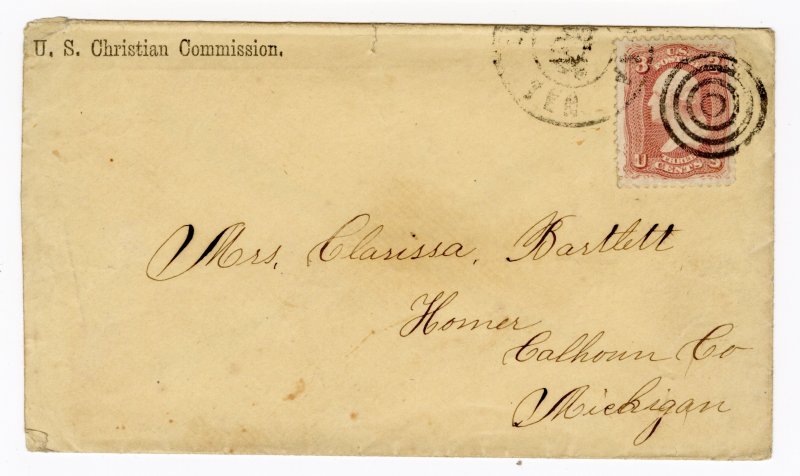 U. S. Christian Commission.
TEN
U.S.
3 3
U 3
THREE
CENTS
Mrs. Clarissa, Bartlett
Homer
Calhoun Co
Michigan